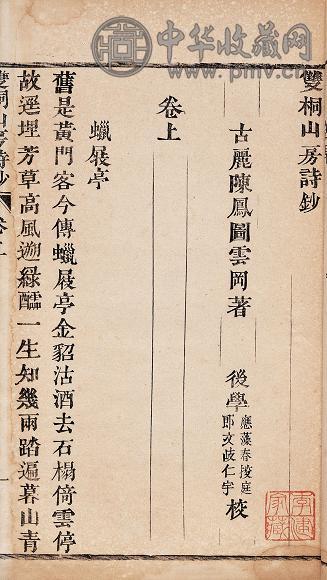 中华收藏网
www.pmv.cn
雙桐山房詩鈔
古麗陳鳳圖雲岡著
後學 應藻春掞庭 郎文歧仁宇 校
卷上
蠟屐亭
舊是黃門客今傳蠟屐亭金貂沽酒去石榻倚雲停
故逕埋芳草高風遡綠醽一生知幾兩踏遍暮山青
雙桐山房詩鈔 卷上 一